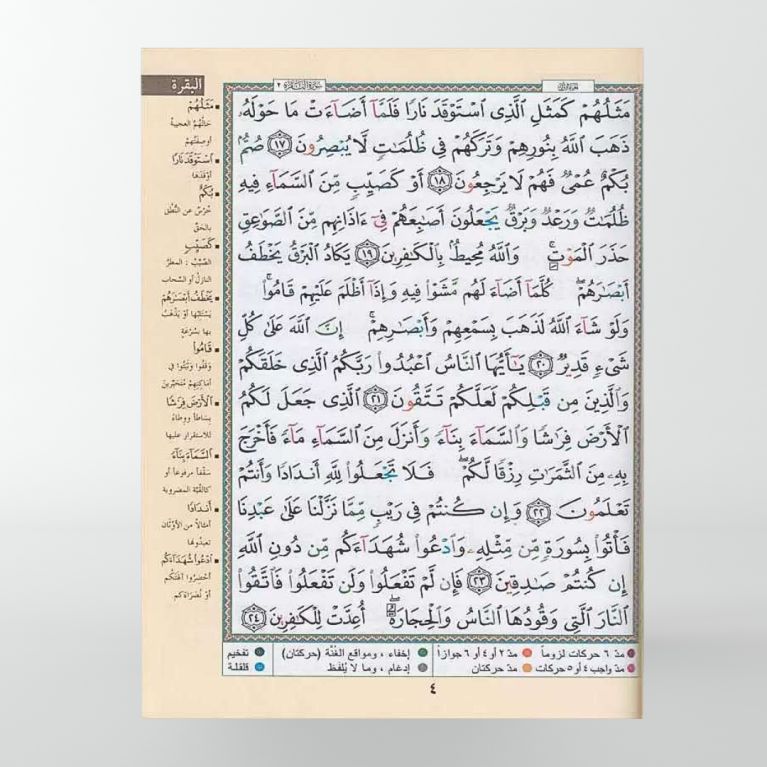 البقرة
سورة البقرة ٢
مَثَلُهُمْ كَمَثَلِ ٱلَّذِى ٱسْتَوْقَدَ نَارًا فَلَمَّآ أَضَآءَتْ مَا حَوْلَهُۥ
ذَهَبَ ٱللَّهُ بِنُورِهِمْ وَتَرَكَهُمْ فِى ظُلُمَـٰتٍ لَّا يُبْصِرُونَ ١٧ صُمٌّۢ
بُكْمٌ عُمْىٌ فَهُمْ لَا يَرْجِعُونَ ١٨ أَوْ كَصَيِّبٍ مِّنَ ٱلسَّمَآءِ فِيهِ
ظُلُمَـٰتٌ وَرَعْدٌ وَبَرْقٌ يَجْعَلُونَ أَصَـٰبِعَهُمْ فِىٓ ءَاذَانِهِم مِّنَ ٱلصَّوَٰعِقِ
حَذَرَ ٱلْمَوْتِ ۚ وَٱللَّهُ مُحِيطٌۢ بِٱلْكَـٰفِرِينَ ١٩ يَكَادُ ٱلْبَرْقُ يَخْطَفُ
أَبْصَـٰرَهُمْ ۖ كُلَّمَآ أَضَآءَ لَهُم مَّشَوْا۟ فِيهِ وَإِذَآ أَظْلَمَ عَلَيْهِمْ قَامُوا۟ ۚ
وَلَوْ شَآءَ ٱللَّهُ لَذَهَبَ بِسَمْعِهِمْ وَأَبْصَـٰرِهِمْ ۚ إِنَّ ٱللَّهَ عَلَىٰ كُلِّ
شَىْءٍ قَدِيرٌ ٢٠ يَـٰٓأَيُّهَا ٱلنَّاسُ ٱعْبُدُوا۟ رَبَّكُمُ ٱلَّذِى خَلَقَكُمْ
وَٱلَّذِينَ مِن قَبْلِكُمْ لَعَلَّكُمْ تَتَّقُونَ ٢١ ٱلَّذِى جَعَلَ لَكُمُ
ٱلْأَرْضَ فِرَٰشًا وَٱلسَّمَآءَ بِنَآءً وَأَنزَلَ مِنَ ٱلسَّمَآءِ مَآءً فَأَخْرَجَ
بِهِۦ مِنَ ٱلثَّمَرَٰتِ رِزْقًا لَّكُمْ ۖ فَلَا تَجْعَلُوا۟ لِلَّهِ أَندَادًا وَأَنتُمْ
تَعْلَمُونَ ٢٢ وَإِن كُنتُمْ فِى رَيْبٍ مِّمَّا نَزَّلْنَا عَلَىٰ عَبْدِنَا
فَأْتُوا۟ بِسُورَةٍ مِّن مِّثْلِهِۦ وَٱدْعُوا۟ شُهَدَآءَكُم مِّن دُونِ ٱللَّهِ
إِن كُنتُمْ صَـٰدِقِينَ ٢٣ فَإِن لَّمْ تَفْعَلُوا۟ وَلَن تَفْعَلُوا۟ فَٱتَّقُوا۟
ٱلنَّارَ ٱلَّتِى وَقُودُهَا ٱلنَّاسُ وَٱلْحِجَارَةُ ۖ أُعِدَّتْ لِلْكَـٰفِرِينَ ٢٤
مَثَلُهُمْ
حَالُهُمُ العجيبةُ
أو صِفَتُهُمْ
ٱسْتَوْقَدَ نَارًا
أوْقَدَهَا
بُكْمٌ
خُرْسٌ عن النُّطْقِ
بالحَقِّ
كَصَيِّبٍ
الصَّيِّبُ : المطرُ
النازلُ أو السَّحاب
يَخْطَفُ أَبْصَـٰرَهُمْ
يَسْتَلِبُهَا أوْ يَذْهَبُ
بها بسُرْعَةٍ
قَامُوا۟
وَقَفُوا وَثَبَتُوا في
أماكِنِهِمْ مُتَحَيِّرين
ٱلْأَرْضَ فِرَٰشًا
بِسَاطاً ووِطاءً
للاستقرار عليها
ٱلسَّمَآءَ بِنَآءً
سَقْفاً مرفوعاً أو
كالقُبَّةِ المضروبةِ
أَندَادًا
أمثالاً من الأوْثَانِ
تعبدُونها
ٱدْعُوا۟ شُهَدَآءَكُم
أحْضِرُوا آلهَتَكُم
أوْ نُصَرَاءَكم
مدّ ٦ حركات لزوماً مدّ ٢ أو ٤ أو ٦ جوازاً إخفاء ، ومواقع الغُنَّة (حركتان) تفخيم
مدّ واجب ٤ أو ٥ حركات مدّ حركتان إدغام ، وما لا يُلفَظ قلقلة
٤